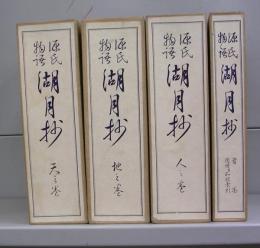 源氏
物語
湖月抄
天之巻
源氏
物語
湖月抄
地之巻
源氏
物語
湖月抄
人之巻
源氏
物語
湖月抄